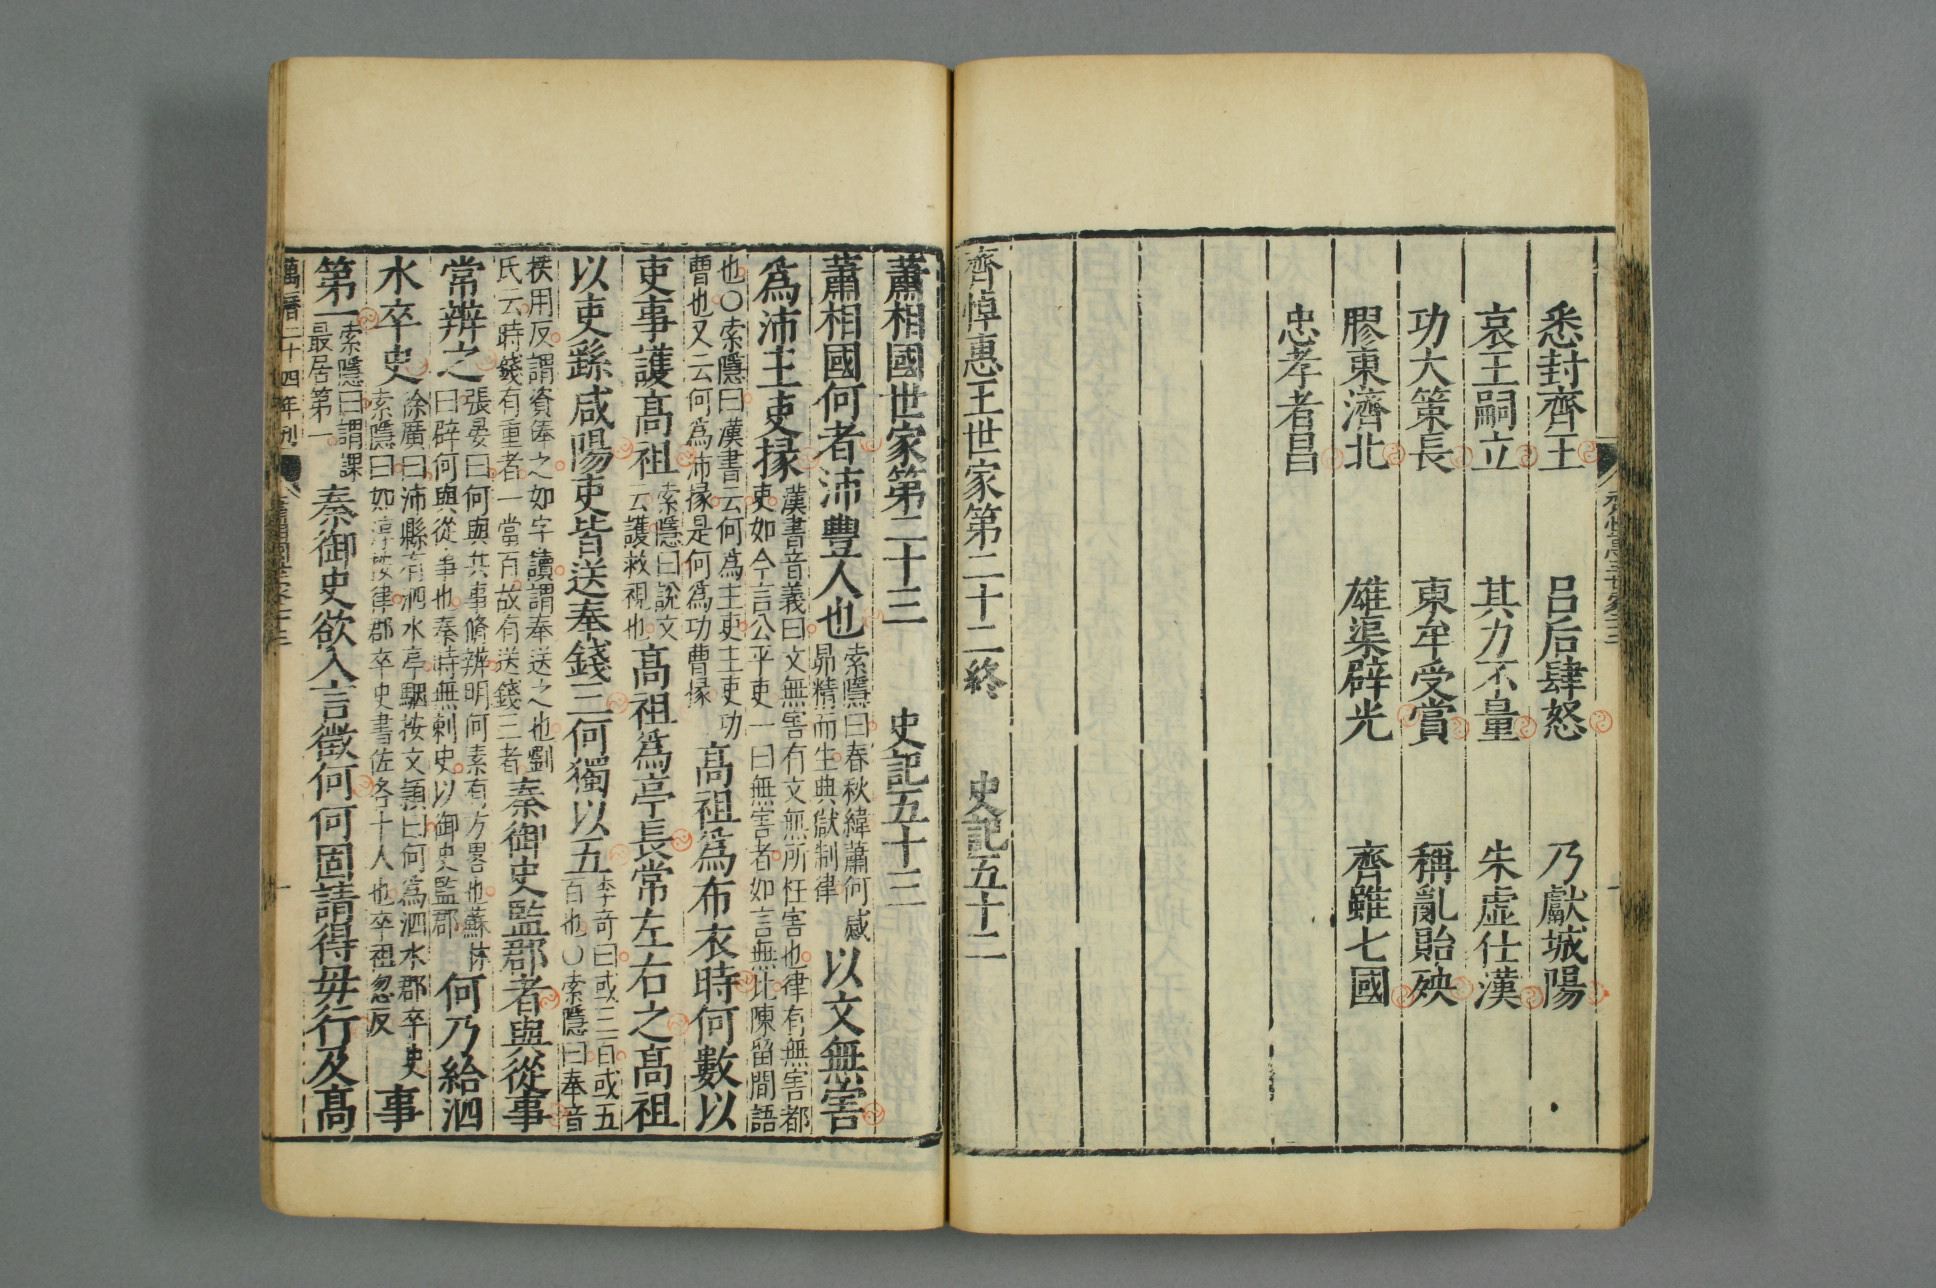 悉封齊王　呂后肆怒　乃獻城陽
哀王嗣立　其力不量　朱虛仕漢
功大策長　東牟受賞　稱亂貽殃
膠東濟北　雄渠辟光　齊雖七國
忠孝者昌
齊悼惠王世家第二十二終　史記五十二
蕭相國世家第二十三　史記五十三
蕭相國何者沛豐人也
索隱曰春秋緯蕭何感
昴精而生典獄制律
以文無害
爲沛主吏掾
漢書音義曰文無害有文無所枉害也律有無害都
吏如今言公平吏一曰無害者如言無比陳留間語
也○索隱曰漢書云何爲主吏主吏功
曹也又云何爲沛掾是何爲功曹掾
高祖爲布衣時何數以
吏事護高祖
索隱曰說文
云護救視也
高祖爲亭長常左右之高祖
以吏繇咸陽吏皆送奉錢三何獨以五
李奇曰或三百或五
百也○索隱曰奉音
扶用反謂資俸之如字讀謂奉送之也劉
氏云時錢有重者一當百故有送錢三者
秦御史監郡者與從事
常辨之
張晏曰何與共事脩辨明何素有方畧也蘇林
曰辟何與從事也秦時無刺史以御史監郡
何乃給泗
水卒史
徐廣曰沛縣有泗水亭駰按文穎曰何爲泗水郡卒史
索隱曰如淳按律郡卒史書佐各十人也卒祖忽反
事
第一
索隱曰謂課
最居第一
秦御史欲入言徵何何固請得毋行及高
萬曆二十四年刊